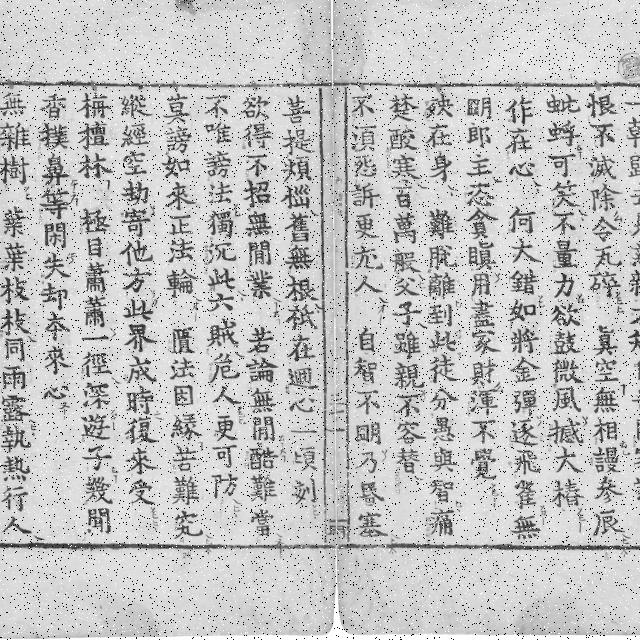 恨不滅除令丸碎　真空無相謾參辰
蚍蜉可笑不量力欲鼓微風撼大樁
作在心　何大錯如將金彈逐飛雀無
明郎主恣貪瞋用盡家財渾不覺
殃在身　難脫離到此徒分愚與智痛
楚酸寒百萬般父子雖親不容替
不須怨訴更尤人　自智不明乃昏塞
菩提煩惱舊無根祇在迴心一頃刻
欲得不招無間業　若論無間酷難當
不唯謗法獨沉此六賊危人更可防
莫謗如來正法輪　匱法因緣苦難究
縱經空劫寄他方此界成時復來受
栴檀林　極目蕭蕭一徑深遊子幾聞
香撲鼻等閑失却本來心
無雜樹　葉葉枝枝同雨露執熱行人